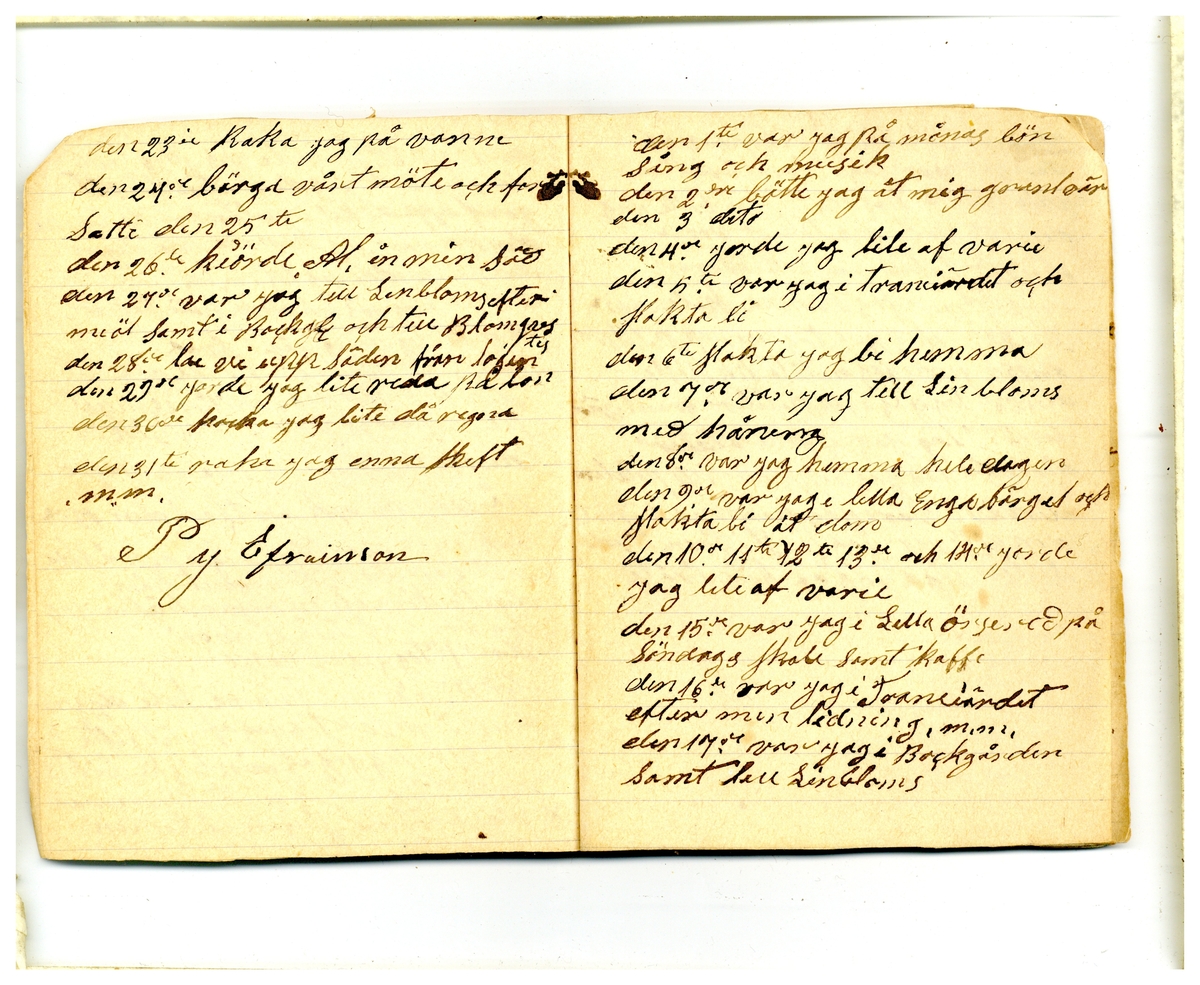 den 23 ie Raka jag på vanne
den 24 de börga vårt möte och for
Satte den 25 te
den 26 te kiörde Al, in min Säd
den 27 de var jag tell Linbloms efter
miöl samt i Backgl och tell Blomgres
den 28 de la vi upp Säden från
den 29 de jorde jag lite reda på
den 30 de jag lite då regna
den 31 te raka jag enna skeft
m.m.
P y Efraimson
den 1 te var jag på månas bön
Sing och musik
den 2 dre bötte jag åt mig
den 3 dito
den 4 de jorde jag lite af varie
den 5 te var jag i traneiärdet och
slakta bi
den 6 te slakta jag bi hemma
den 7 de var jag tell Linbloms
med
den 8 de var jag hemma hele dagen
den 9 de var jag i lella Enga bärget och
slakta bi åt dom
den 10 de 11 te 12 te 13 de och 14 de jorde
jag lite af varie
den 15 de var jag i Lella på
Söndags skole samt kaffe
den 16 de var jag i Traneiärdet
efter min lidning, m.m.
den 17 de var jag i Backgården
samt tell Linbloms